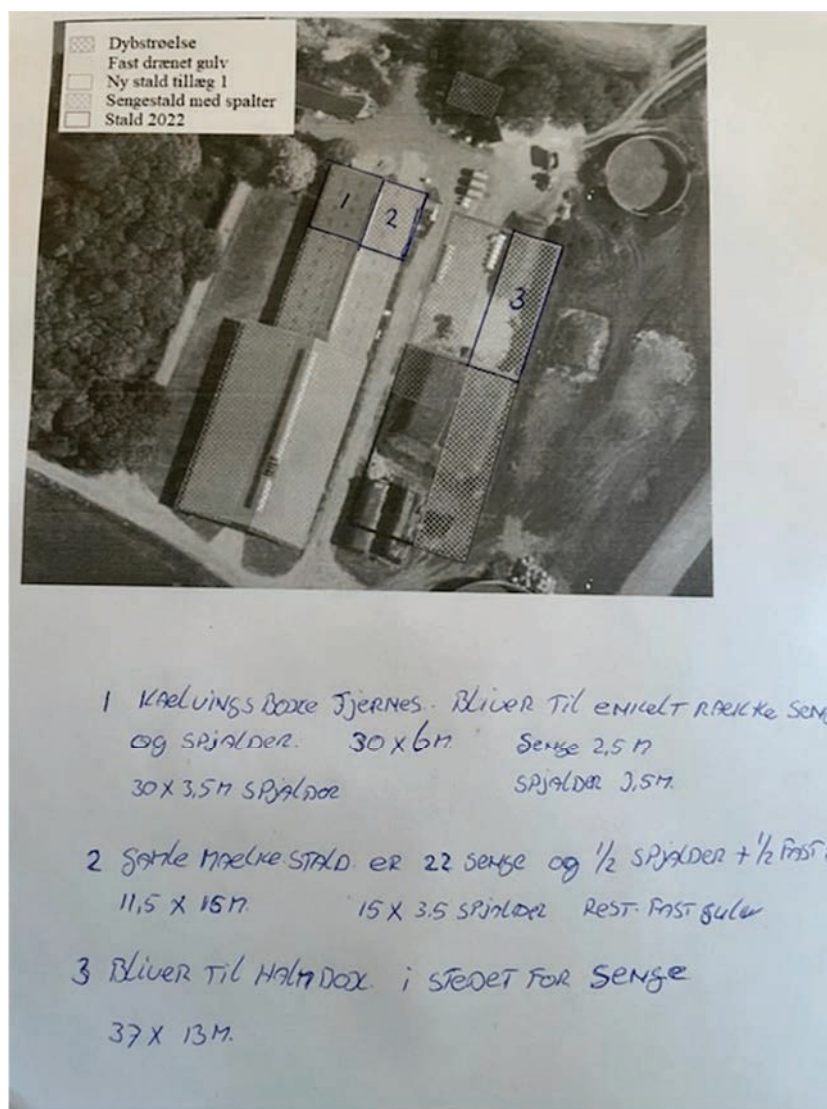 Dybstrøelse
Fast drænet gulv
Ny stald tillæg 1
Sengestald med spalter
Stald 2022
1
2
3
1 KAELVINGSBOXE FJERNES. BLIVER TIL ENKELT RAEKKE SENGE
OG SPJALDER. 30 X 6M SENGE 2,5 M
30 X 3,5M SPJALDER SPJALDER 3,5M.
2 GAMLE MAELKE.STALD. ER 22 SENGE OG 1/2 SPJALDER + 1/2 FAST
11,5 X 15M. 15 X 3.5 SPJALDER REST. FAST GULV
3 BLIVER TIL HALM BOX. i STEDET FOR SENGE
37 X 13M.